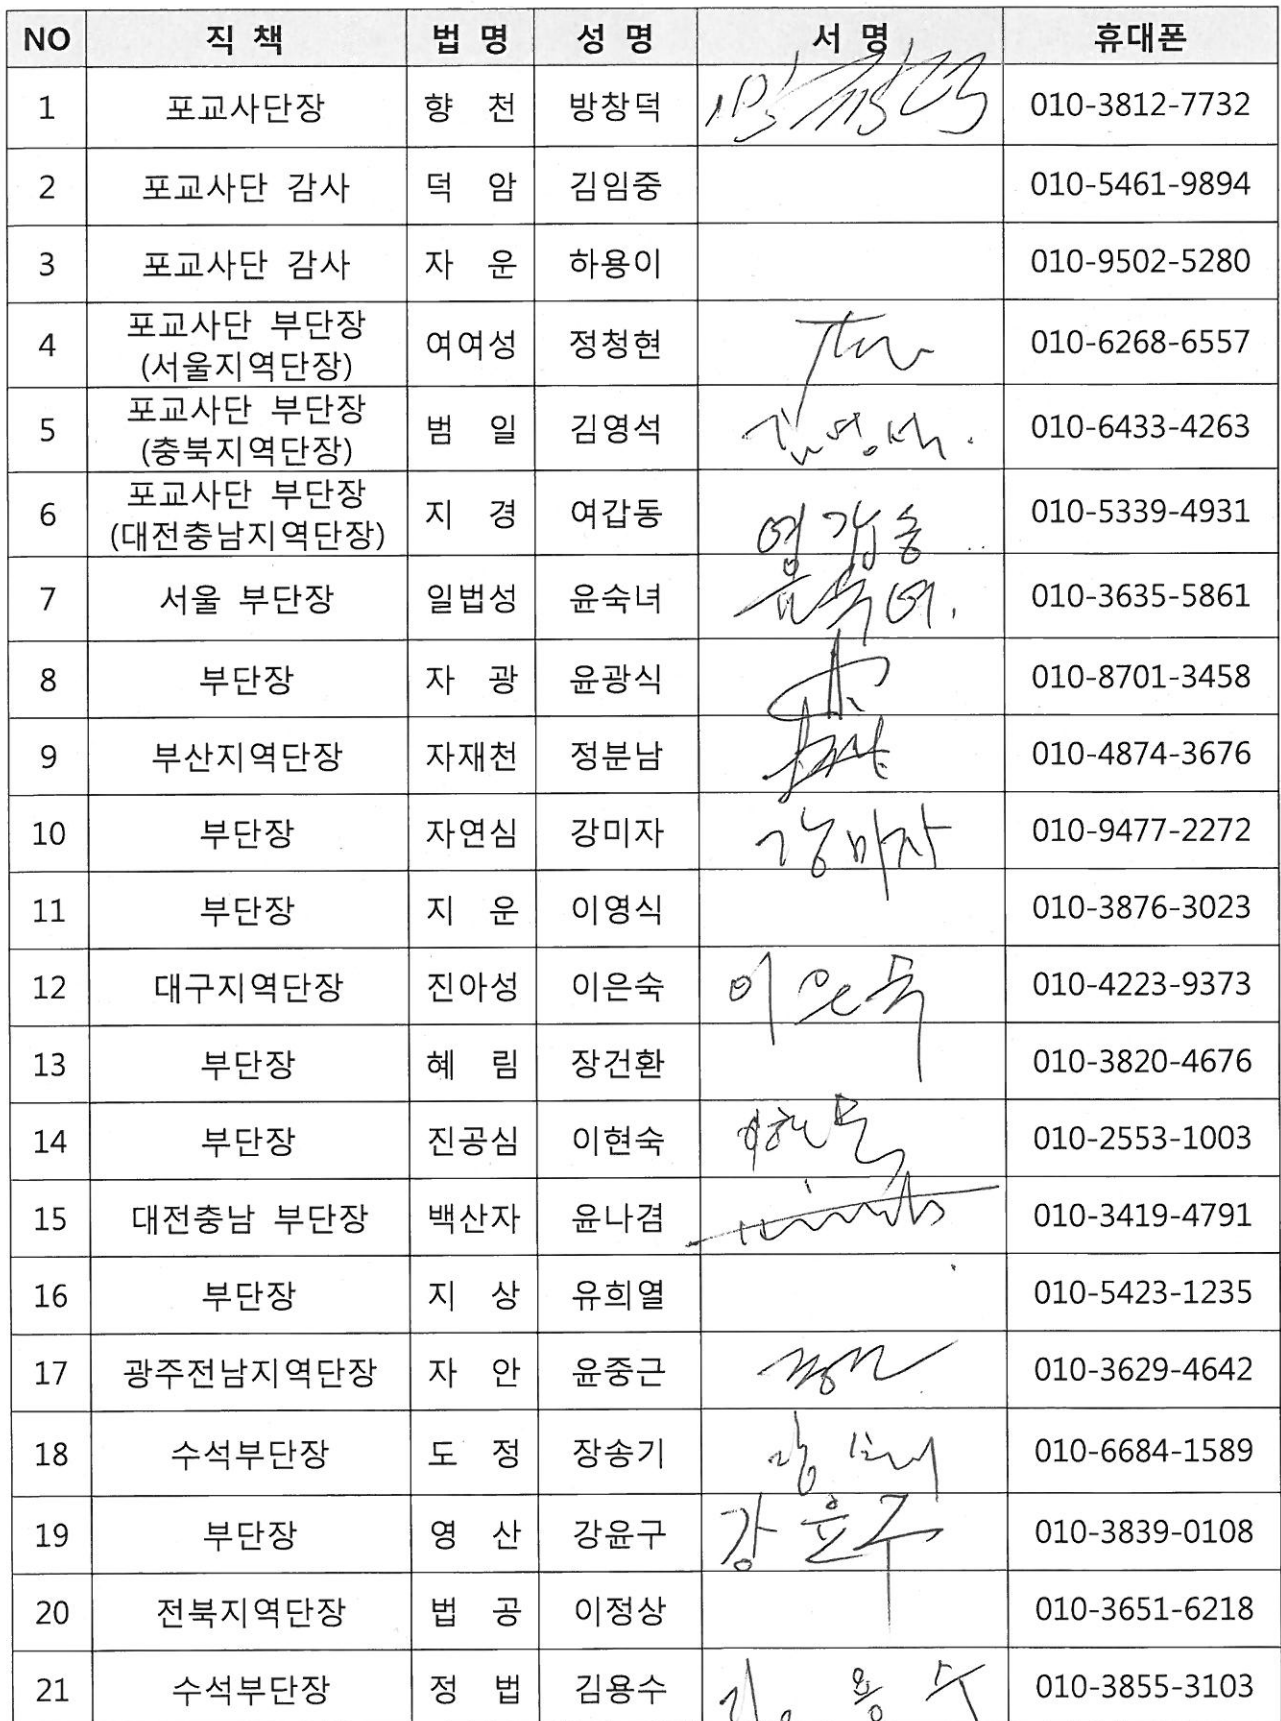 NO 직 책 법 명 성 명 서 명 휴대폰
1 포교사단장 향 천 방창덕 010-3812-7732
2 포교사단 감사 덕 암 김임중 010-5461-9894
3 포교사단 감사 자 운 하용이 010-9502-5280
4 포교사단 부단장 여여성 정청현 010-6268-6557
(서울지역단장)
5 포교사단 부단장 범 일 김영석 김영석 010-6433-4263
(충북지역단장)
6 포교사단 부단장 지 경 여갑동 010-5339-4931
(대전충남지역단장)
7 서울 부단장 일법성 윤숙녀 윤숙녀 010-3635-5861
8 부단장 자 광 윤광식 010-8701-3458
9 부산지역단장 자재천 정분남 010-4874-3676
10 부단장 자연심 강미자 강미자 010-9477-2272
11 부단장 지 운 이영식 010-3876-3023
12 대구지역단장 진아성 이은숙 이은숙 010-4223-9373
13 부단장 혜 림 장건환 010-3820-4676
14 부단장 진공심 이현숙 이현숙 010-2553-1003
15 대전충남 부단장 백산자 윤나겸 010-3419-4791
16 부단장 지 상 유희열 010-5423-1235
17 광주전남지역단장 자 안 윤중근 010-3629-4642
18 수석부단장 도 정 장송기 010-6684-1589
19 부단장 영 산 강윤구 강윤구 010-3839-0108
20 전북지역단장 법 공 이정상 010-3651-6218
21 수석부단장 정 법 김용수 김용수 010-3855-3103